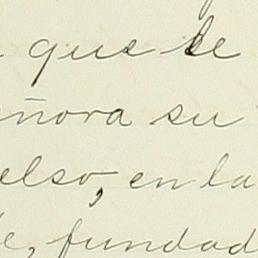 que se
ñora su
elso, en la
e, fundad